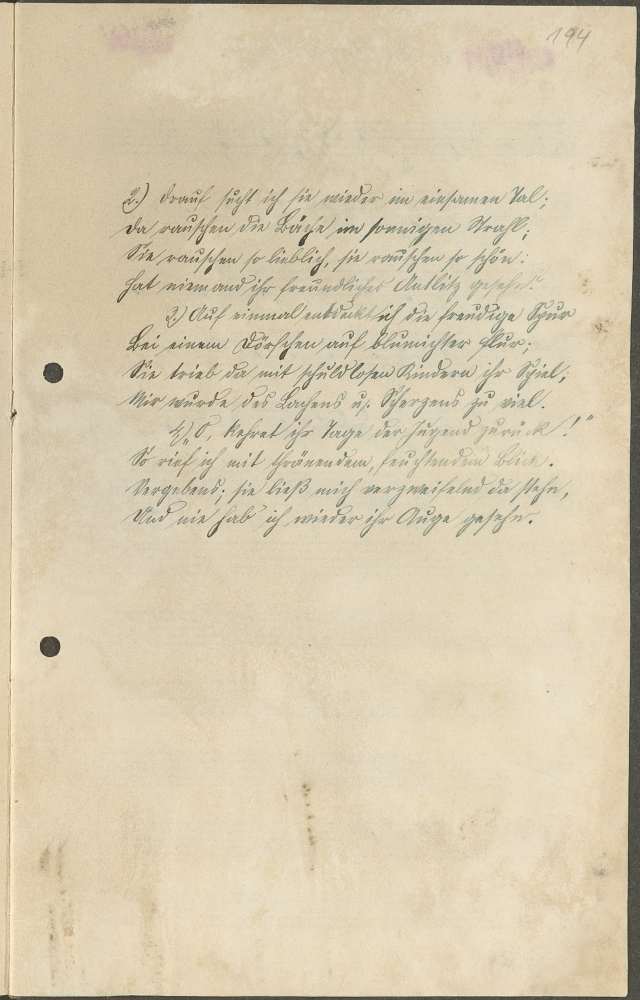 194
2.) Drauf sucht ich sie wieder im einsamen Tal;
Da rauschen die Bäche im sonnigen Strahl;
Sie rauschen so lieblich, sie rauschen so schön:
Hat niemand ihr freundliches Antlitz gesehn?
3.) Auf einmal entdeckt ich die freudige Spur
Bei einem Dörfchen auf blumichter Flur;
Sie trieb da mit schuldlosen Kindern ihr Spiel;
Mir wurde des Lachens u. Scherzens zu viel.
4.) „O, kehret ihr Tage der Jugend zurück!“
So rief ich mit thränendem, feuchtendem Blick.
Vergebens; sie ließ mich verzweifelnd da stehn,
Und nie hab' ich wieder ihr Auge gesehn.